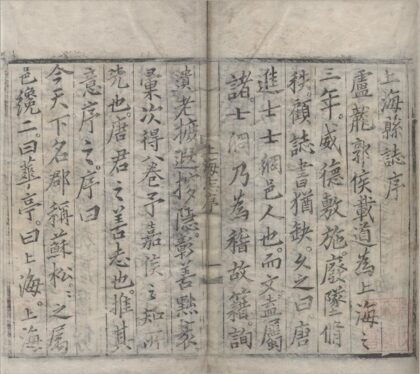 上海縣誌序
盧龍郭侯載道為上海之
三年。威德敷施。廢墜脩
秩。顧誌書猶缺。久之曰唐
進士士綱邑人也。而文盍屬
諸士綱乃為稽故籍詢
上海志序
老摭遐隱。彰善黜衺
彙次得八卷予嘉侯之知所
先也。唐君之善志也。推其
意序之。序曰
今天下名郡稱蘇松之属
邑纔二。曰華亭。曰上海。上海